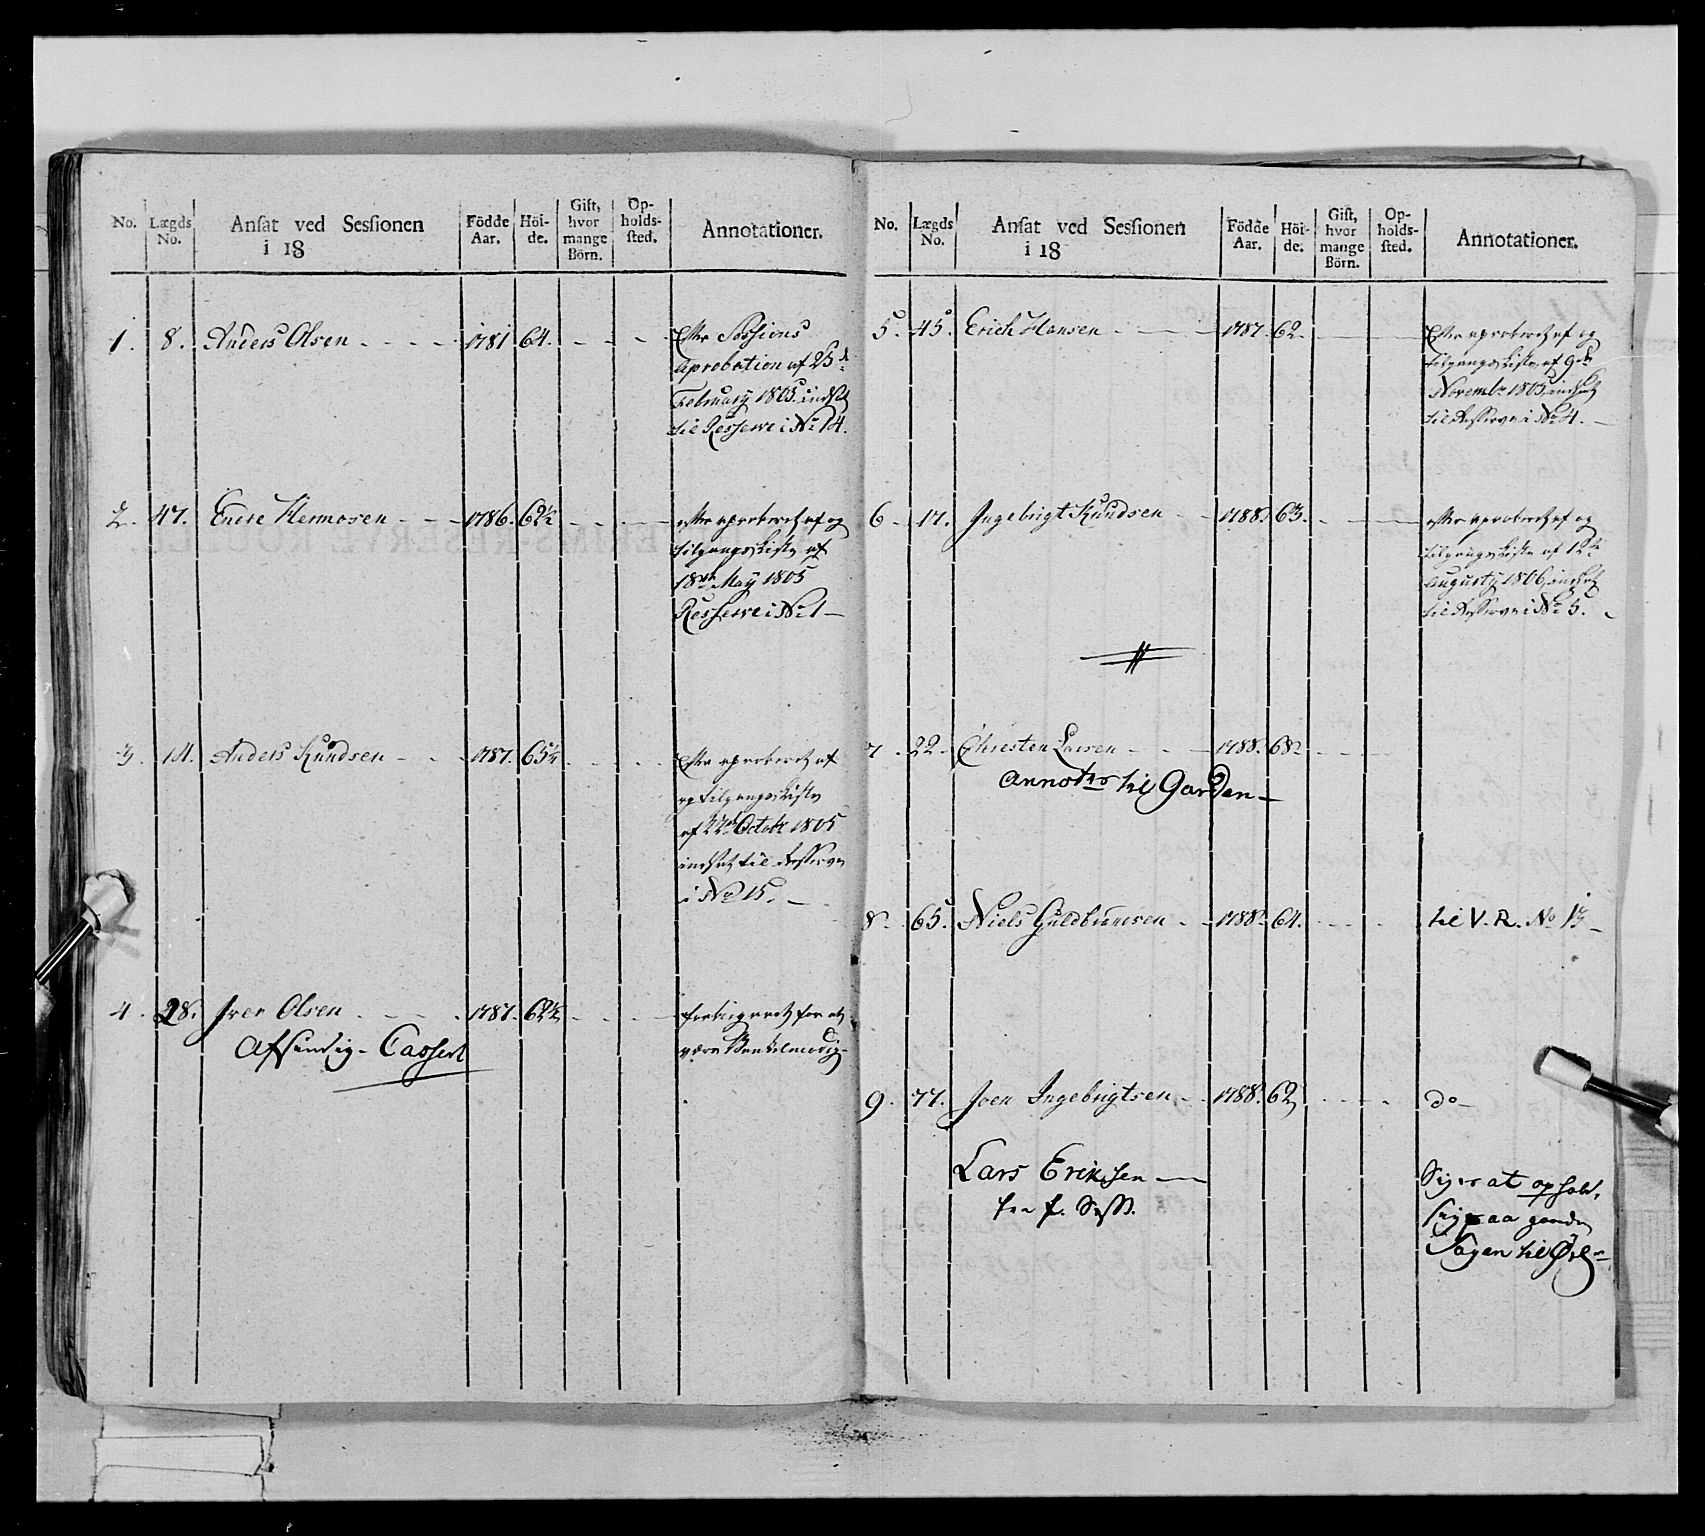 No. Lægds No. Ansat ved Sessionen i 18 Födde Aar. Höi-de. Gift, hvor mange Börn. Op-holds-sted. Annotationer.
1. 8. Anders Olsen 1781 64. Efter Sessions
Aprobation af 25d
February 1805 indsat
til Resserve i No 14.
2. 47. Enere Hermosen 1786. 62½ efter aproberet af og
tilgangs Liste af
18de May 1805
Resserve i No 1
3. 14. Anders Knudsen 1787. 65¼ Efter aproberet af
og tilgangs Liste
af 22d Octobr 1805
indsat til Resserve
i No 15.
4. 28. Iver Olsen 1787. 62½ for at
Afsindig - Casseret være
No. Lægds No. Ansat ved Sessionen i 18 Födde Aar. Höi-de. Gift, hvor mange Börn. Op-holds-sted. Annotationer.
5. 45. Erich Hansen 1787 62 Efter aproberet af og
tilgangs Liste af 9de
Novembr 1805 indsat
til Resserve i No 4.
6. 17. Ingebrigt Knudsen 1788. 63. efter aproberet af og
tilgangs Liste af 12te
Augusty 1806 indsat
til Resserve i No 5.
7. 22 Christen Larsen 1788. 68
til Garden
8. 65. Niels Guldbransen 1788 64. til V. R. No 13
9. 77. Joen Ingebrigtsen 1788. 62 do
Lars Eriksen Siges at ophold.
fra f. Sess. sig paa